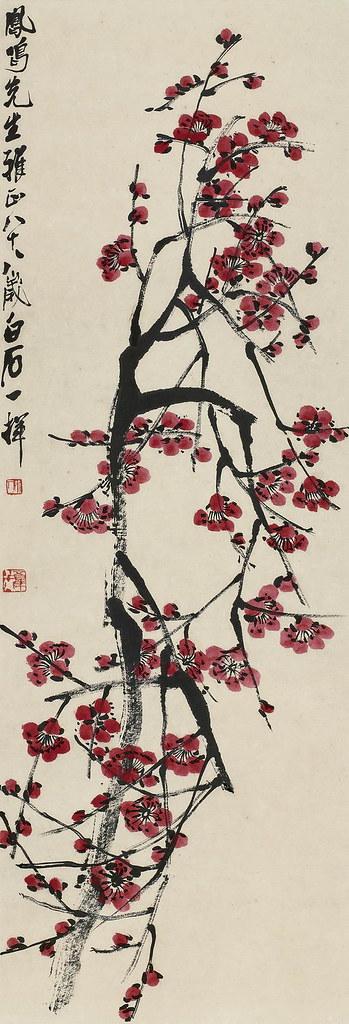 鳳鳴先生雅正八十八歲白石一揮